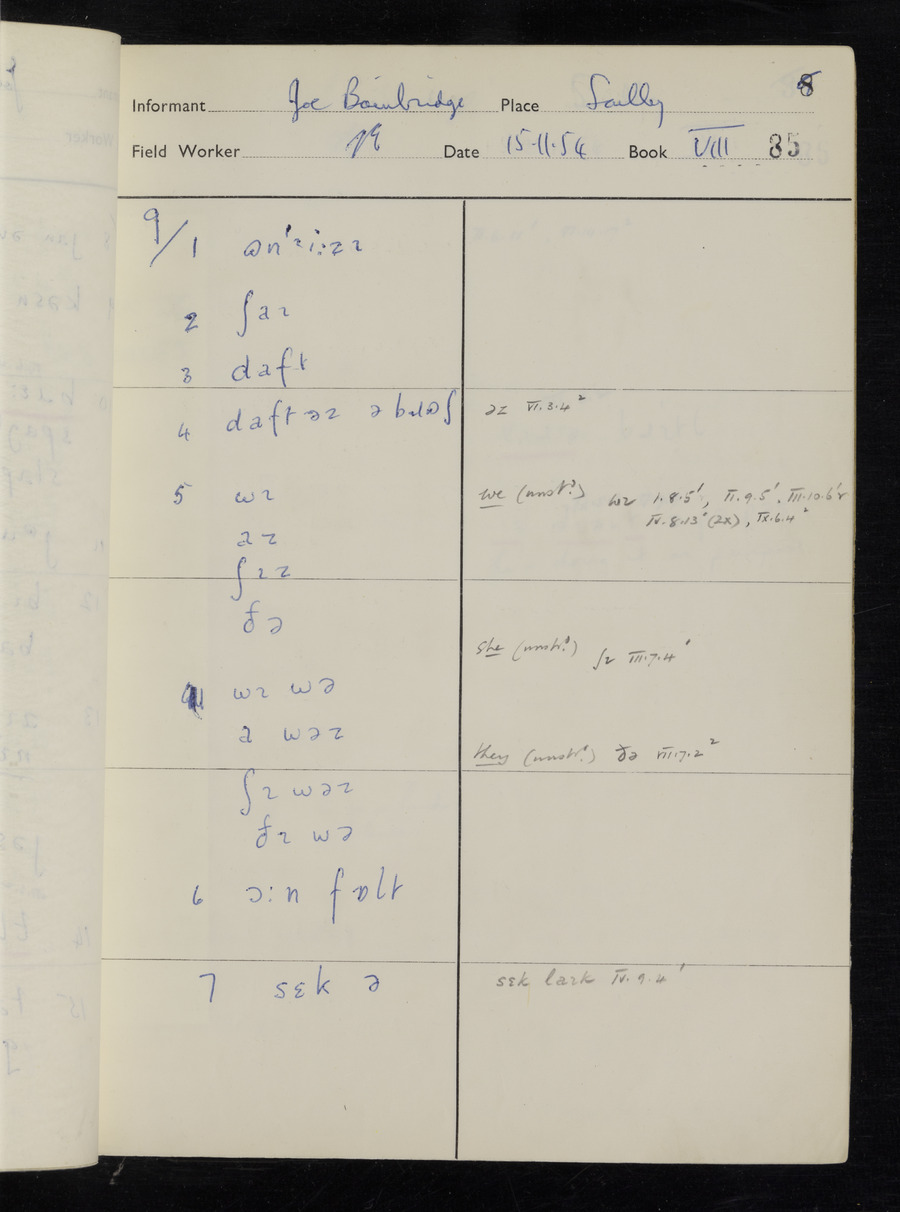 8
Informant Joe Bainbridge Place Soulby
Field Worker SE Date 15·11·54 Book VIII 85
9/1
2 ʃaɪ
3 daft
4 daft əz ə
əz VI.3.4²
5 wɪ
we (unstr.ᵈ) wɪ I.8.5¹, II.9.5¹, III.10.6¹
IV.8.13¹ (2x), IX.6.4²
aɪ
ʃɪ
ðə
she (unstr.ᵈ) ʃɪ III.7.4¹
wɪ wə
a wəz
they (unstr.ᵈ) ðə VII.7.2²
ʃɪ wəz
ðɪ wə
6 ɔ:n fɒlt
7 sɛk ə
sɛk laɪk IV.9.4¹